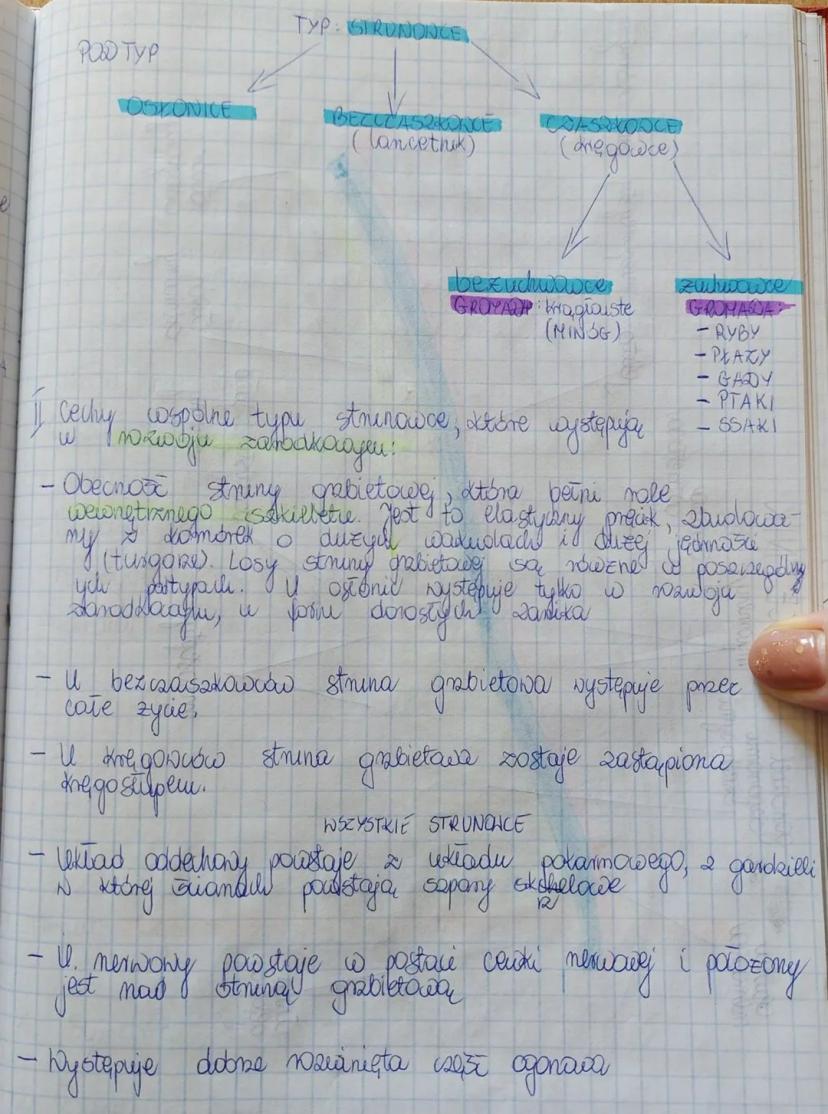 TYP: STRUNOWCE
PODTYP
OSŁONICE
BEZCZASZKOWCE
CZASZKOWCE
(lancetnik)
(kręgowce)
bezżuchwowce
żuchwowce
GROMADA: krągłouste
GROMADA:
(MINÓG)
- RYBY
- PŁAZY
- GADY
- PTAKI
- SSAKI
II Cechy wspólne typu strunowce, które występują
w rozwoju zarodkowym:
- Obecność struny grzbietowej, która pełni role
wewnętrznego szkieletu. Jest to elastyczny pręcik, zbudowa-
ny z komórek o dużych wakuolach i dużej jędrności
(turgorze). Losy struny grzbietowej są różne w poszczególn
ych podtypach. U osłonic występuje tylko w rozwoju
zarodkowym, u form dorosłych zanika
- U bezczaszkowców struna grzbietowa występuje przez
całe życie.
- U kręgowców struna grzbietowa zostaje zastąpiona
kręgosłupem.
WSZYSTKIE STRUNOWCE
- Układ oddechowy powstaje z układu pokarmowego, z gardzieli
w której ścianach powstają szpary skrzelowe
- U. nerwowy powstaje w postaci cewki nerwowej i położony
jest nad struną grzbietową
- Występuje dobrze rozwinięta część ogonowa